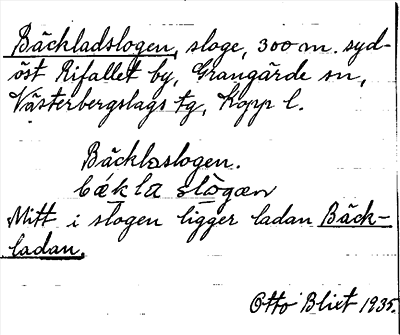 Bäckladslogen, sloge, 300 m. syd-
öst Rifallet by, Grangärde sn,
Västerbergslags tg, Kopp l.
Bäcklaslogen.
bǽkla slògæn
Mitt i slogen ligger ladan Bäck-
ladan.
Otto Blixt 1935.